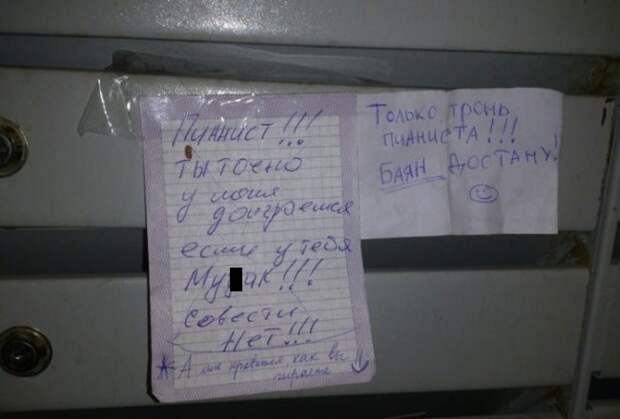 Пианист!!!
ты точно
у меня
доиграешся
если у тебя
Му ак!!!
Совести
Нет!!!
* А мне нравится как вы
играете
Только тронь
пианиста!!!
Баян достану!